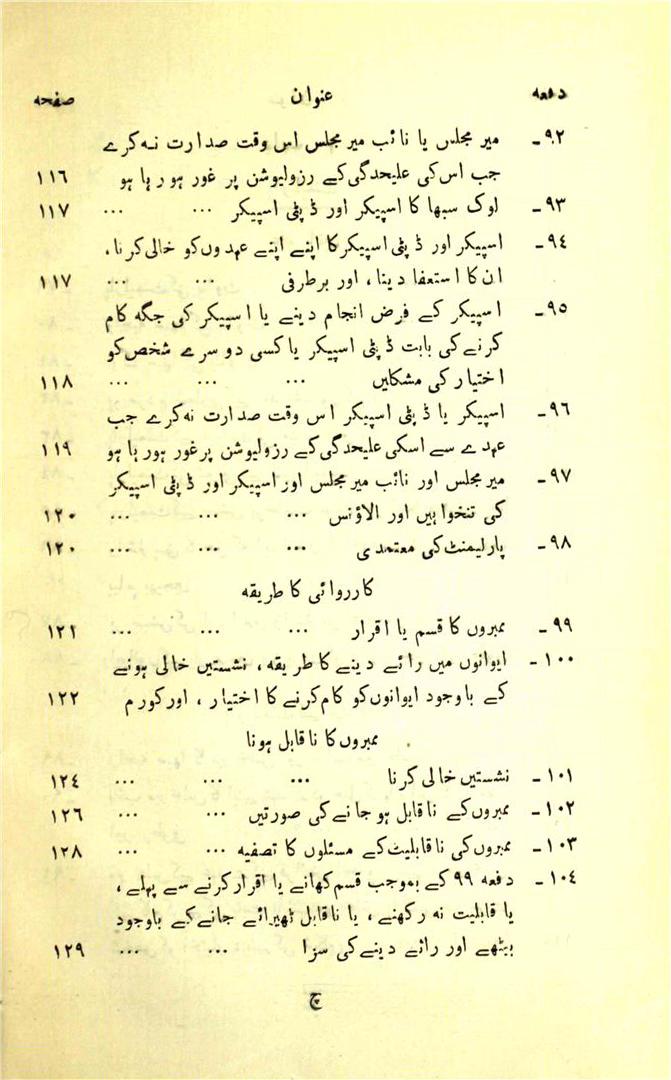 دفعہ عنوان صفحہ
۹۲۔ میر مجلس یا نائب میر مجلس اس وقت صدارت نہ کرے
جب اس کی علیحدگی کے رزولیوشن پر غور ہو رہا ہو ۱۱٦
۹۳۔ لوک سبھا کا اسپیکر اور ڈپٹی اسپیکر ... ... ۱۱۷
۹٤۔ اسپیکر اور ڈپٹی اسپیکر کا اپنے اپنے عہدوں کو خالی کرنا،
ان کا استعفا دینا، اور برطرفی ... ... ۱۱۷
۹٥۔ اسپیکر کے فرض انجام دینے یا اسپیکر کی جگہ کام
کرنے کی بابت ڈپٹی اسپیکر یا کسی دوسرے شخص کو
اختیار کی مشکلیں ... ... ... ۱۱۸
۹٦۔ اسپیکر یا ڈپٹی اسپیکر اس وقت صدارت نہ کرے جب
عہدے سے اسکی علیحدگی کے رزولیوشن پر غور ہو رہا ہو ۱۱۹
۹۷۔ میر مجلس اور نائب میر مجلس اور اسپیکر اور ڈپٹی اسپیکر
کی تنخواہیں اور الاؤنس ... ... ... ۱۲۰
۹۸۔ پارلیمنٹ کی معتمدی ... ... ... ۱۲۰
کارروائی کا طریقہ
۹۹۔ ممبروں کا قسم یا اقرار ... ... ... ۱۲۱
۱۰۰۔ ایوانوں میں رائے دینے کا طریقہ، نشستیں خالی ہونے
کے باوجود ایوانوں کو کام کرنے کا اختیار، اور کورم ۱۲۲
ممبروں کا ناقابل ہونا
۱۰۱۔ نشستیں خالی کرنا ... ... ... ۱۲٤
۱۰۲۔ ممبروں کے ناقابل ہو جانے کی صورتیں ... ... ۱۲٦
۱۰۳۔ ممبروں کی ناقابلیت کے مسئلوں کا تصفیہ ... ... ۱۲۸
۱۰٤۔ دفعہ ۹۹ کے بموجب قسم کھانے یا اقرار کرنے سے پہلے،
یا قابلیت نہ رکھنے، یا ناقابل ٹھیرائے جانے کے باوجود
بیٹھے اور رائے دینے کی سزا ... ... ۱۲۹
چ